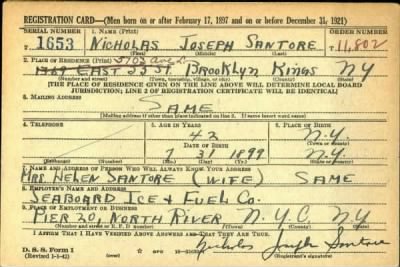 REGISTRATION CARD—(Men born on or after February 17, 1897 and on or before December 31, 1921)
SERIAL NUMBER 1. NAME (Print) ORDER NUMBER
T 1653 NICHOLAS JOSEPH SANTORE T11,802
(First) (Middle) (Last)
2. PLACE OF RESIDENCE (Print)
EAST 33 ST BROOKLYN KINGS NY
(Number and street) (Town, township, village, or city) (County) (State)
[THE PLACE OF RESIDENCE GIVEN ON THE LINE ABOVE WILL DETERMINE LOCAL BOARD
JURISDICTION; LINE 2 OF REGISTRATION CERTIFICATE WILL BE IDENTICAL]
3. MAILING ADDRESS
SAME
[Mailing address if other than place indicated on line 2. If same insert word same]
4. TELEPHONE 5. AGE IN YEARS 6. PLACE OF BIRTH
42 N.Y.
DATE OF BIRTH (Town or county)
7 31 1899 N.Y.
(Exchange) (Number) (Mo.) (Day) (Yr.) (State or country)
7. NAME AND ADDRESS OF PERSON WHO WILL ALWAYS KNOW YOUR ADDRESS
MRS. HELEN SANTORE (WIFE) SAME
8. EMPLOYER'S NAME AND ADDRESS
SEABOARD ICE & FUEL CO.
9. PLACE OF EMPLOYMENT OR BUSINESS
PIER 20, NORTH RIVER N.Y.C. NY
(Number and street or R. F. D. number) (Town) (County) (State)
I AFFIRM THAT I HAVE VERIFIED ABOVE ANSWERS AND THAT THEY ARE TRUE.
D. S. S. Form 1
(Revised 1-1-42) Nicholas Joseph Santore
(Registrant's signature)